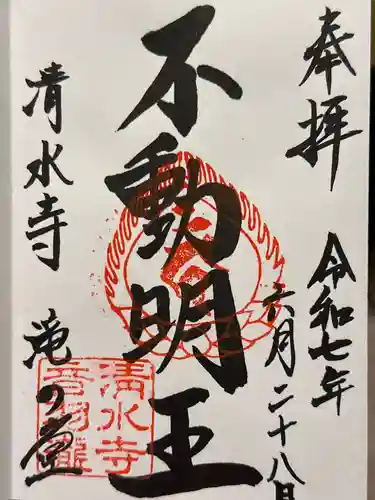 奉拝
令和七年
六月二十八日
不動明王
清水寺
滝の堂
清水寺
音羽瀧